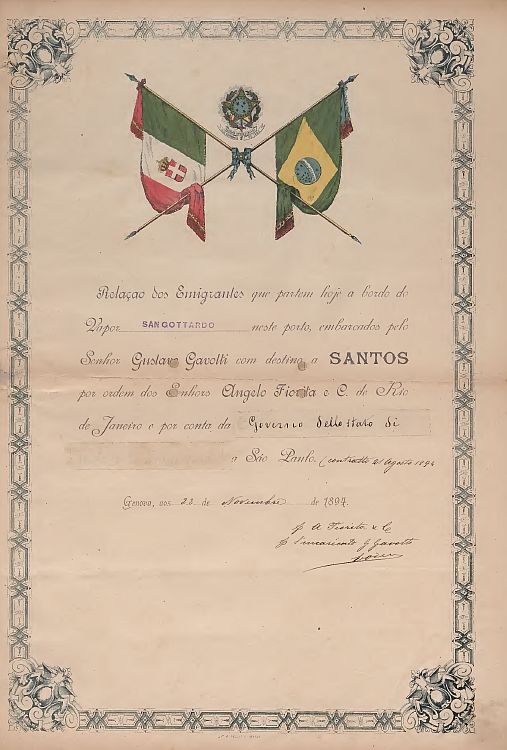 Relaçao dos Emigrantes que partem hoje a bordo do
Vapor SANGOTTARDO neste porto, embarcados pelo
Senhor Gustavo Gavotti com destino a SANTOS
por ordem dos Enhors Angelo Fiorita e C. de Rio
de Janeiro e por conta da Governo dello stato di
a São Paulo. (contratto 21 Agosto 1894
Genova, aos 22 de Novembre de 1894.
p A Fiorita & C
p l'incaricato G Gavotti